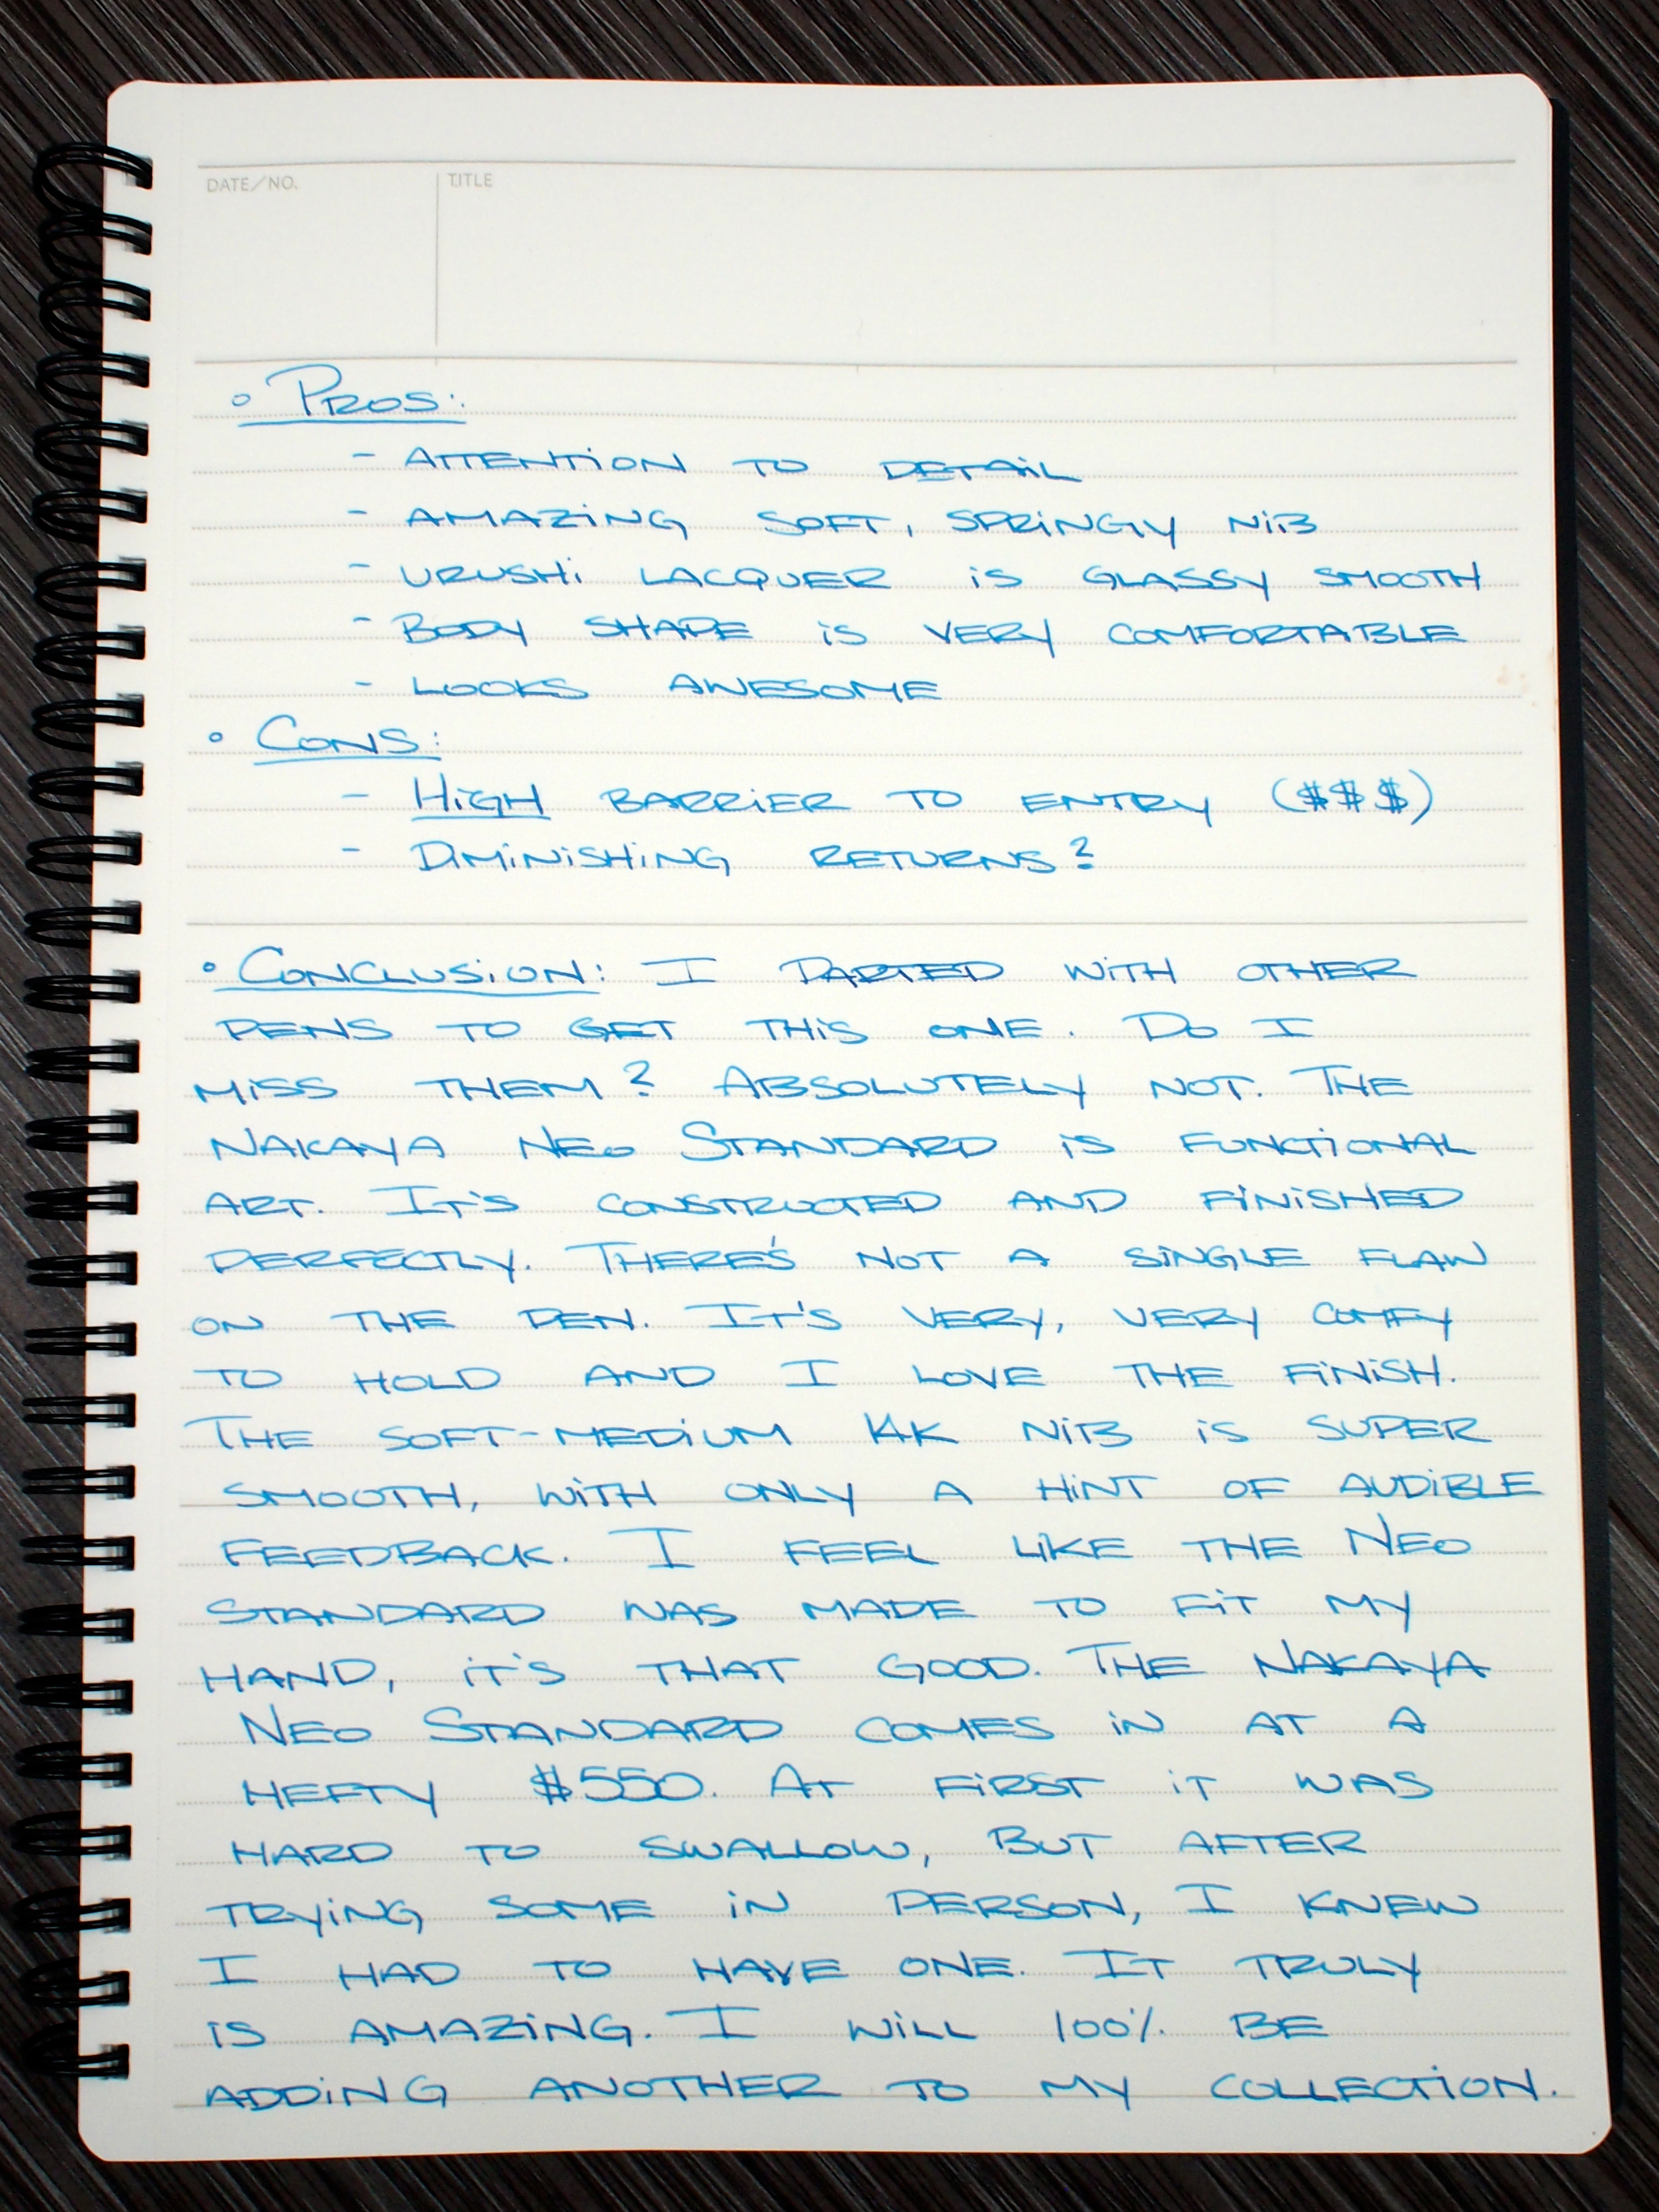 DATE/NO. TITLE
• PROS:
- ATTENTION TO DETAIL
- AMAZING SOFT, SPRINGLY NIB
- URUSHI LACQUER IS GLASSY SMOOTH
- BODY SHAPE IS VERY COMFORTABLE
- LOOKS AWESOME
• CONS:
- HIGH BARRIER TO ENTRY ($$$)
- DIMINISHING RETURNS?
• CONCLUSION: I PARTED WITH OTHER
PENS TO GET THIS ONE. DO I
MISS THEM? ABSOLUTELY NOT. THE
NAKAYA NEO STANDARD IS FUNCTIONAL
ART. IT'S CONSTRUCTED AND FINISHED
PERFECTLY. THERE'S NOT A SINGLE FLAW
ON THE PEN. IT'S VERY, VERY COMFY
TO HOLD AND I LOVE THE FINISH.
THE SOFT-MEDIUM 14K NIB IS SUPER
SMOOTH, WITH ONLY A HINT OF AUDIBLE
FEEDBACK. I FEEL LIKE THE NEO
STANDARD WAS MADE TO FIT MY
HAND, IT'S THAT GOOD. THE NAKAYA
NEO STANDARD COMES IN AT A
HEFTY $550. AT FIRST IT WAS
HARD TO SWALLOW, BUT AFTER
TRYING SOME IN PERSON, I KNEW
I HAD TO HAVE ONE. IT TRULY
IS AMAZING. I WILL 100% BE
ADDING ANOTHER TO MY COLLECTION.